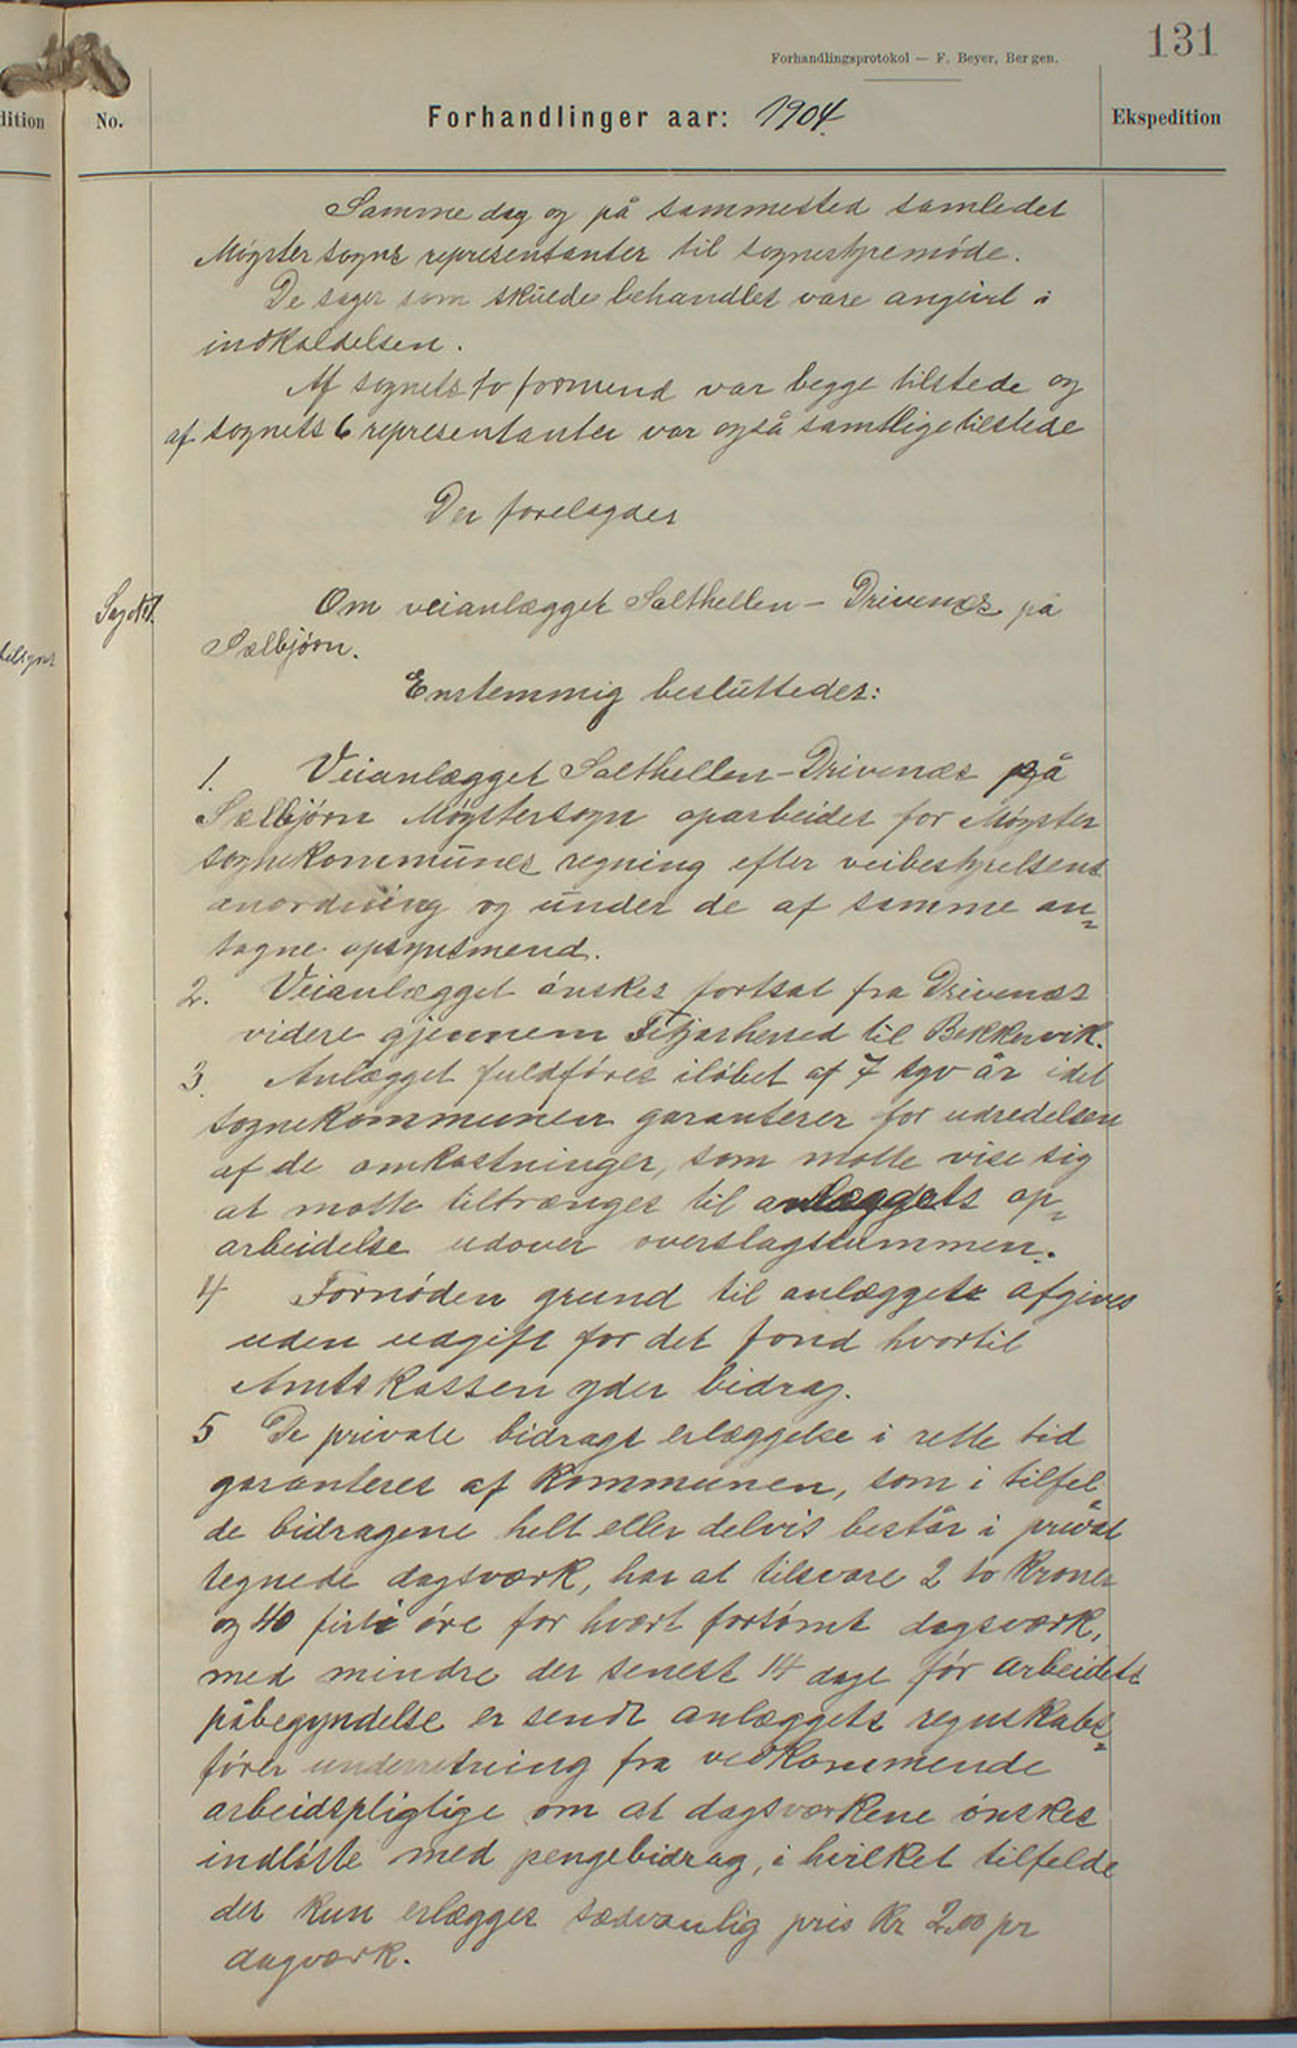 131
Forhandlingsprotokol — F. Beyer, Bergen.
dition
No.
Forhandlinger aar: 1904.
Ekspedition
Samme dag og på sammested samledes
Møgster sogns representanter til sognestyremøde.
De sager som skulde behandles vare angivet i
indkaldelsen.
Af sognets to formend var begge tilstede og
af sognets 6 representanter var også samtlige tilstede
Der forelagdes
Sag No 1.
Om veianlægget Salthellen - Drivenes på
Selbjørn.
Enstemmig besluttedes:
1. Veianlægget Salthellen - Drivenæs på
Selbjørn Møgstersogn oparbeides for Møgster
sognekommunes regning efter veibestyrelsens
anordning og under de af samme an=
tagne opsynsmend.
2. Veianlægget ønskes fortsat fra Drivenæs
videre gjennem Fitjarherred til Bekkervik.
3. Anlægget fuldføres iløbet af 7 syv år idet
sognekommunen garanterer for udredelsen
af de omkostninger, som motte vise sig
at motte tiltrænges til anlæggets op=
arbeidelse udover overslagssummen.
4 Fornøden grund til anlægget afgives
uden udgift for det fond hvortil
Amtskassen yder bidrag.
5 De private bidrags erlæggelse i rette tid
garanteres af kommunen, som i tilfel
de bidragene helt eller delvis består i privat
tegnede dagsværk, har at tilsvare 2 to kroner
og 40 firti øre for hvert forsømt dagsværk,
med mindre der senest 14 dage før arbeidets
påbegyndelse er sendt anlæggets regnskabs=
fører underretning fra vedkommende
arbeidspligtige om at dagsværkene ønskes
indløste med pengebidrag, i hvilket tilfelde
der kun erlægges sædvanlig pris kr 2.00 pr
dagværk.